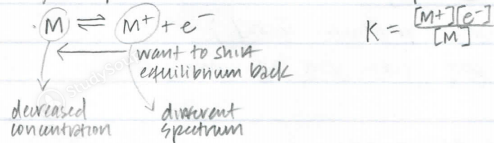 M ⇌ M⁺ + e⁻
K = [M+][e⁻] / [M]
want to shift
equilibrium back
decreased
concentration
different
spectrum